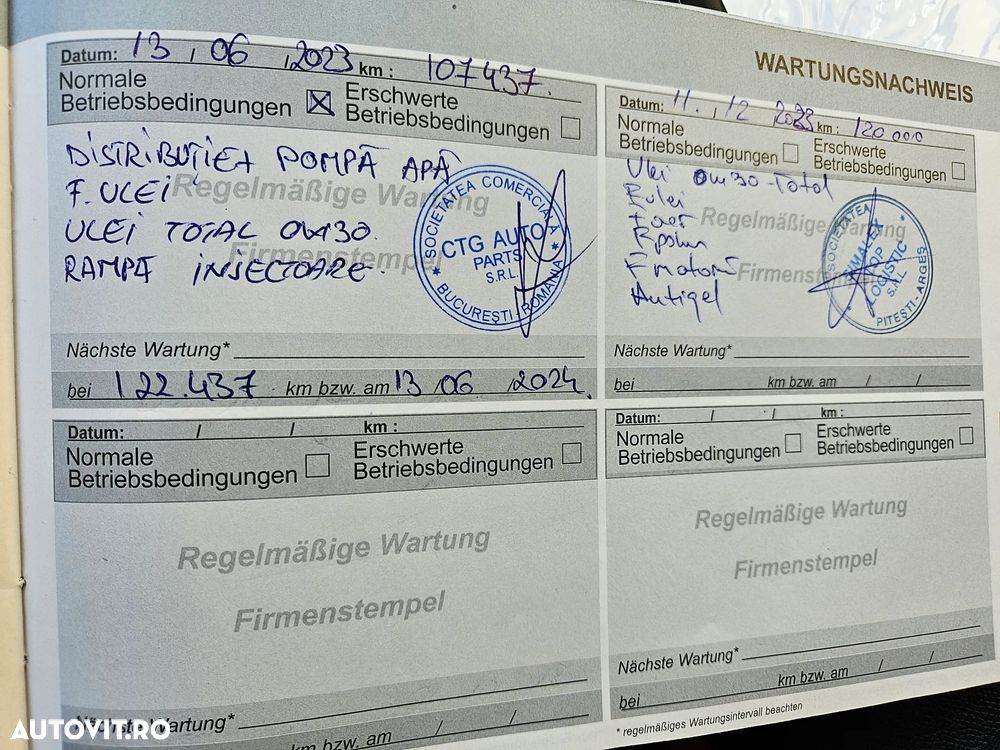 WARTUNGSNACHWEIS
Datum: 13 , 06 , 2023 km : 107437.
Normale Betriebsbedingungen
Erschwerte Betriebsbedingungen
DISTRIBUȚIE+ POMPĂ APĂ
F. ULEI
ULEI TOTAL 0W30.
RAMPĂ INJECTOARE.
Regelmäßige Wartung
Firmenstempel
* SOCIETATEA COMERCIALĂ *
CTG AUTO
PARTS
S.R.L.
BUCUREȘTI - ROMÂNIA
Nächste Wartung*
bei 122.437 km bzw. am 13 06 2024
Datum: 11. , 12 2023 km : 120 000
Normale Betriebsbedingungen
Erschwerte Betriebsbedingungen
Ulei 0W30 - Total
F ulei
F aer
F polen
F motorină
Antigel
Regelmäßige Wartung
Firmenstempel
SOCIETATEA
TOP
LOGISTIC
S.R.L.
PITEȘTI - ARGEȘ
Nächste Wartung*
bei km bzw. am / /
Datum: / / km :
Normale Betriebsbedingungen
Erschwerte Betriebsbedingungen
Regelmäßige Wartung
Firmenstempel
Nächste Wartung*
km bzw. am / /
Datum: / / km :
Normale Betriebsbedingungen
Erschwerte Betriebsbedingungen
Regelmäßige Wartung
Firmenstempel
Nächste Wartung*
bei km bzw. am / /
* regelmäßiges Wartungsintervall beachten
AUTOVIT.RO